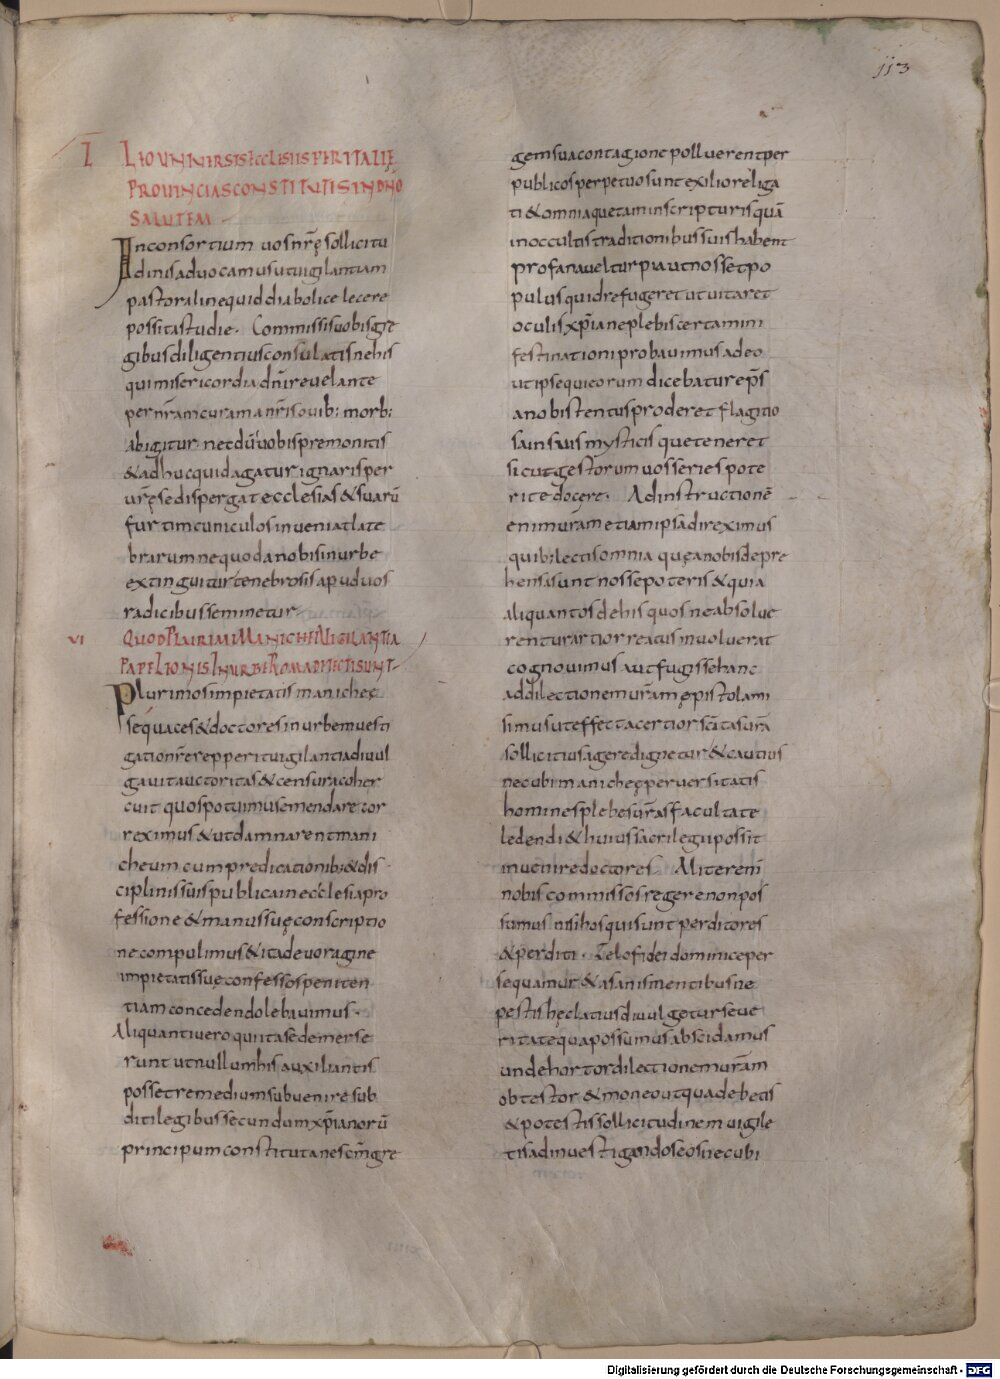 113
I LEO UNIVERSIS ECCLESIIS PER ITALIĘ
PROVINCIAS CONSTITUTIS IN DNO
SALUTEM
In consortium vos nrę sollicitu
dinis advocamus ut vigilantiam
pastoralinequid diabolice lecere
possit astudie. Commissis vobis gre
gibus diligentius consulatis nehis
qui misericordia dni revelante
per nram curam a nris ovib; morb;
abigitur nec dū vobis premonitis
& adhuc quid agatur ignaris per
vrę se dispergat ecclesias & suarū
furtim cuniculos inveniat late
brarum ne quod a nobis in urbe
extinguitur tenebrosis apud vos
radicibus seminetur
VI QUOD PLURIMI MANICHEI VIGILANTIA
PAPE LEONIS IN URBE ROMA DETECTI SUNT
Plurimos impietatis manicheę
sequaces & doctores in urbe investi
gatio nre repperit vigilantia divul
gavit auctoritas & censura coher
cuit quos potuimus emendare cor
reximus & ut damnarent mani
cheum cum predicationib; & dis
ciplinis suis publica in ecclesia pro
fessione & manus suę conscriptio
ne compulimus & ita de voragine
impietatis suę confessos peniten
tiam concedendo lebavimus.
Aliquanti vero qui ita se demerse
runt ut nullum his auxiliantis
posset remedium subvenire sub
diti legibus secundum xpianorū
principum constituta ne scm gre
gem sua contagione polluerent per
publicos perpetuo sunt exilio religa
ti & omnia que tam in scripturis quā
in occultis traditionibus suis habent
profana vel turpia ut nosset po
pulus quid refugeret ut vitaret
oculis xpiane plebis certamini
festinationi probavimus adeo
ut ipse qui eorum dicebatur eps
a nobis tentus proderet flagitio
sa in suis mysticis que teneret
sicut gestorum vos series pote
rit edocere. Ad instructionē
enim vram etiam ipsā direximus
quib; lectis omnia quę a nobis depre
hensi sunt nosse poteris & quia
aliquantos de his quos ne absolve
rentur artior reatus involverat
cognovimus aufugisse hanc
ad dilectionem vram ępistolam
simus ut effecta certior scitas vra
sollicitius agere dignetur & cautius
necubi manicheę perversitatis
homines plebes vras facultate
ledendi & huius sacrilegii possit
invenire doctores. Aliter enī
nobis commissos regere non pos
sumus nisi hos qui sunt perditores
& perditi. Zelo fidei dominice per
sequamur & a sanis mentibus ne
pestis hęc latius divulgetur seve
ritate qua possumus abscidamus
unde hortor dilectionem vram
obtestor & moneo ut qua debetis
& potestis sollicitudinem vigile
tis ad investigandos eos necubi
Digitalisierung gefördert durch die Deutsche Forschungsgemeinschaft - DFG